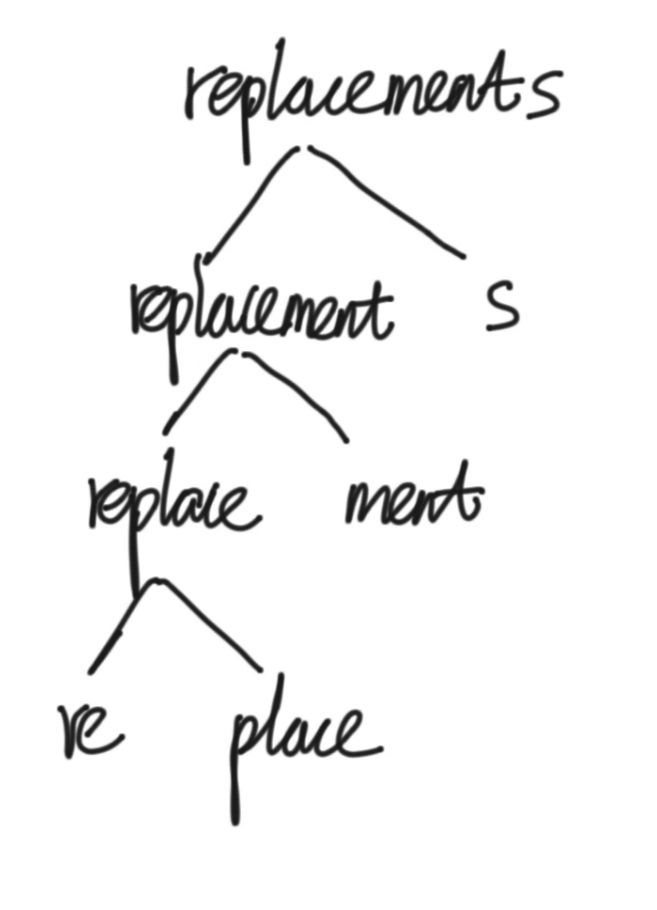 replacements
replacement s
replace ment
re place